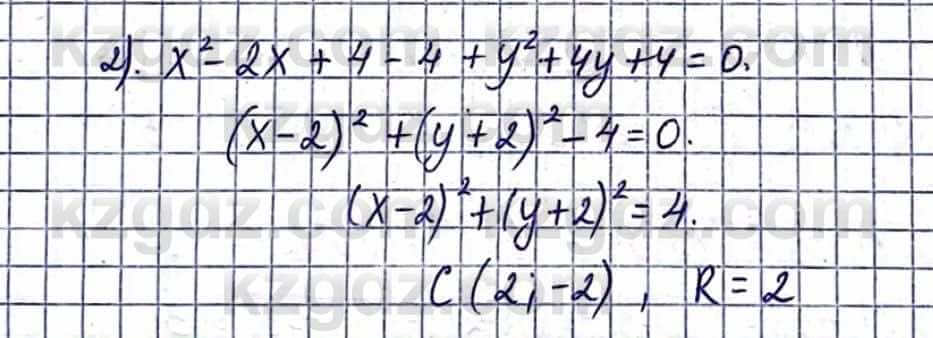 2). x² - 2x + 4 - 4 + y² + 4y + 4 = 0.
(x-2)² + (y+2)² - 4 = 0.
(x-2)² + (y+2)² = 4.
C (2; -2) , R = 2
kzgdz.com kzgdz.com
kzgdz.com
kzgdz.com kzgdz.com
kzgdz.com